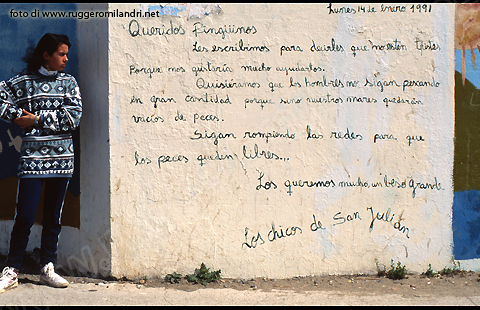 foto di www.ruggeromilandri.net
Lunes 14 de enero 1991
Queridos Pingüinos
Les escribimos para decirles que no estén tristes
Porque nos gustaría mucho ayudarlos.
Quisiéramos que los hombres no sigan pescando
en gran cantidad porque sino nuestros mares quedarán
vacíos de peces.
Sigan rompiendo las redes para que
los peces queden libres...
Los queremos mucho, un beso grande
Los chicos de San Julián